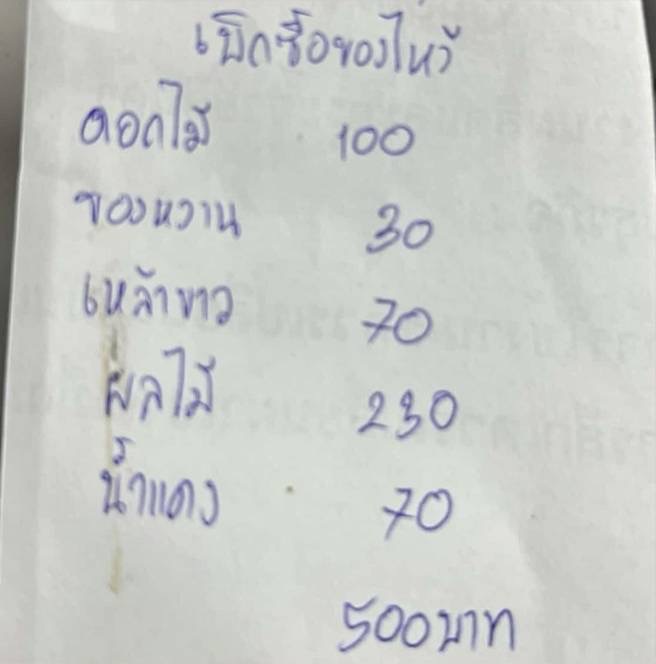 เบิกซื้อของไหว้
ดอกไม้ 100
ของหวาน 30
เหล้าขาว 70
ผลไม้ 230
น้ำแดง 70
500บาท